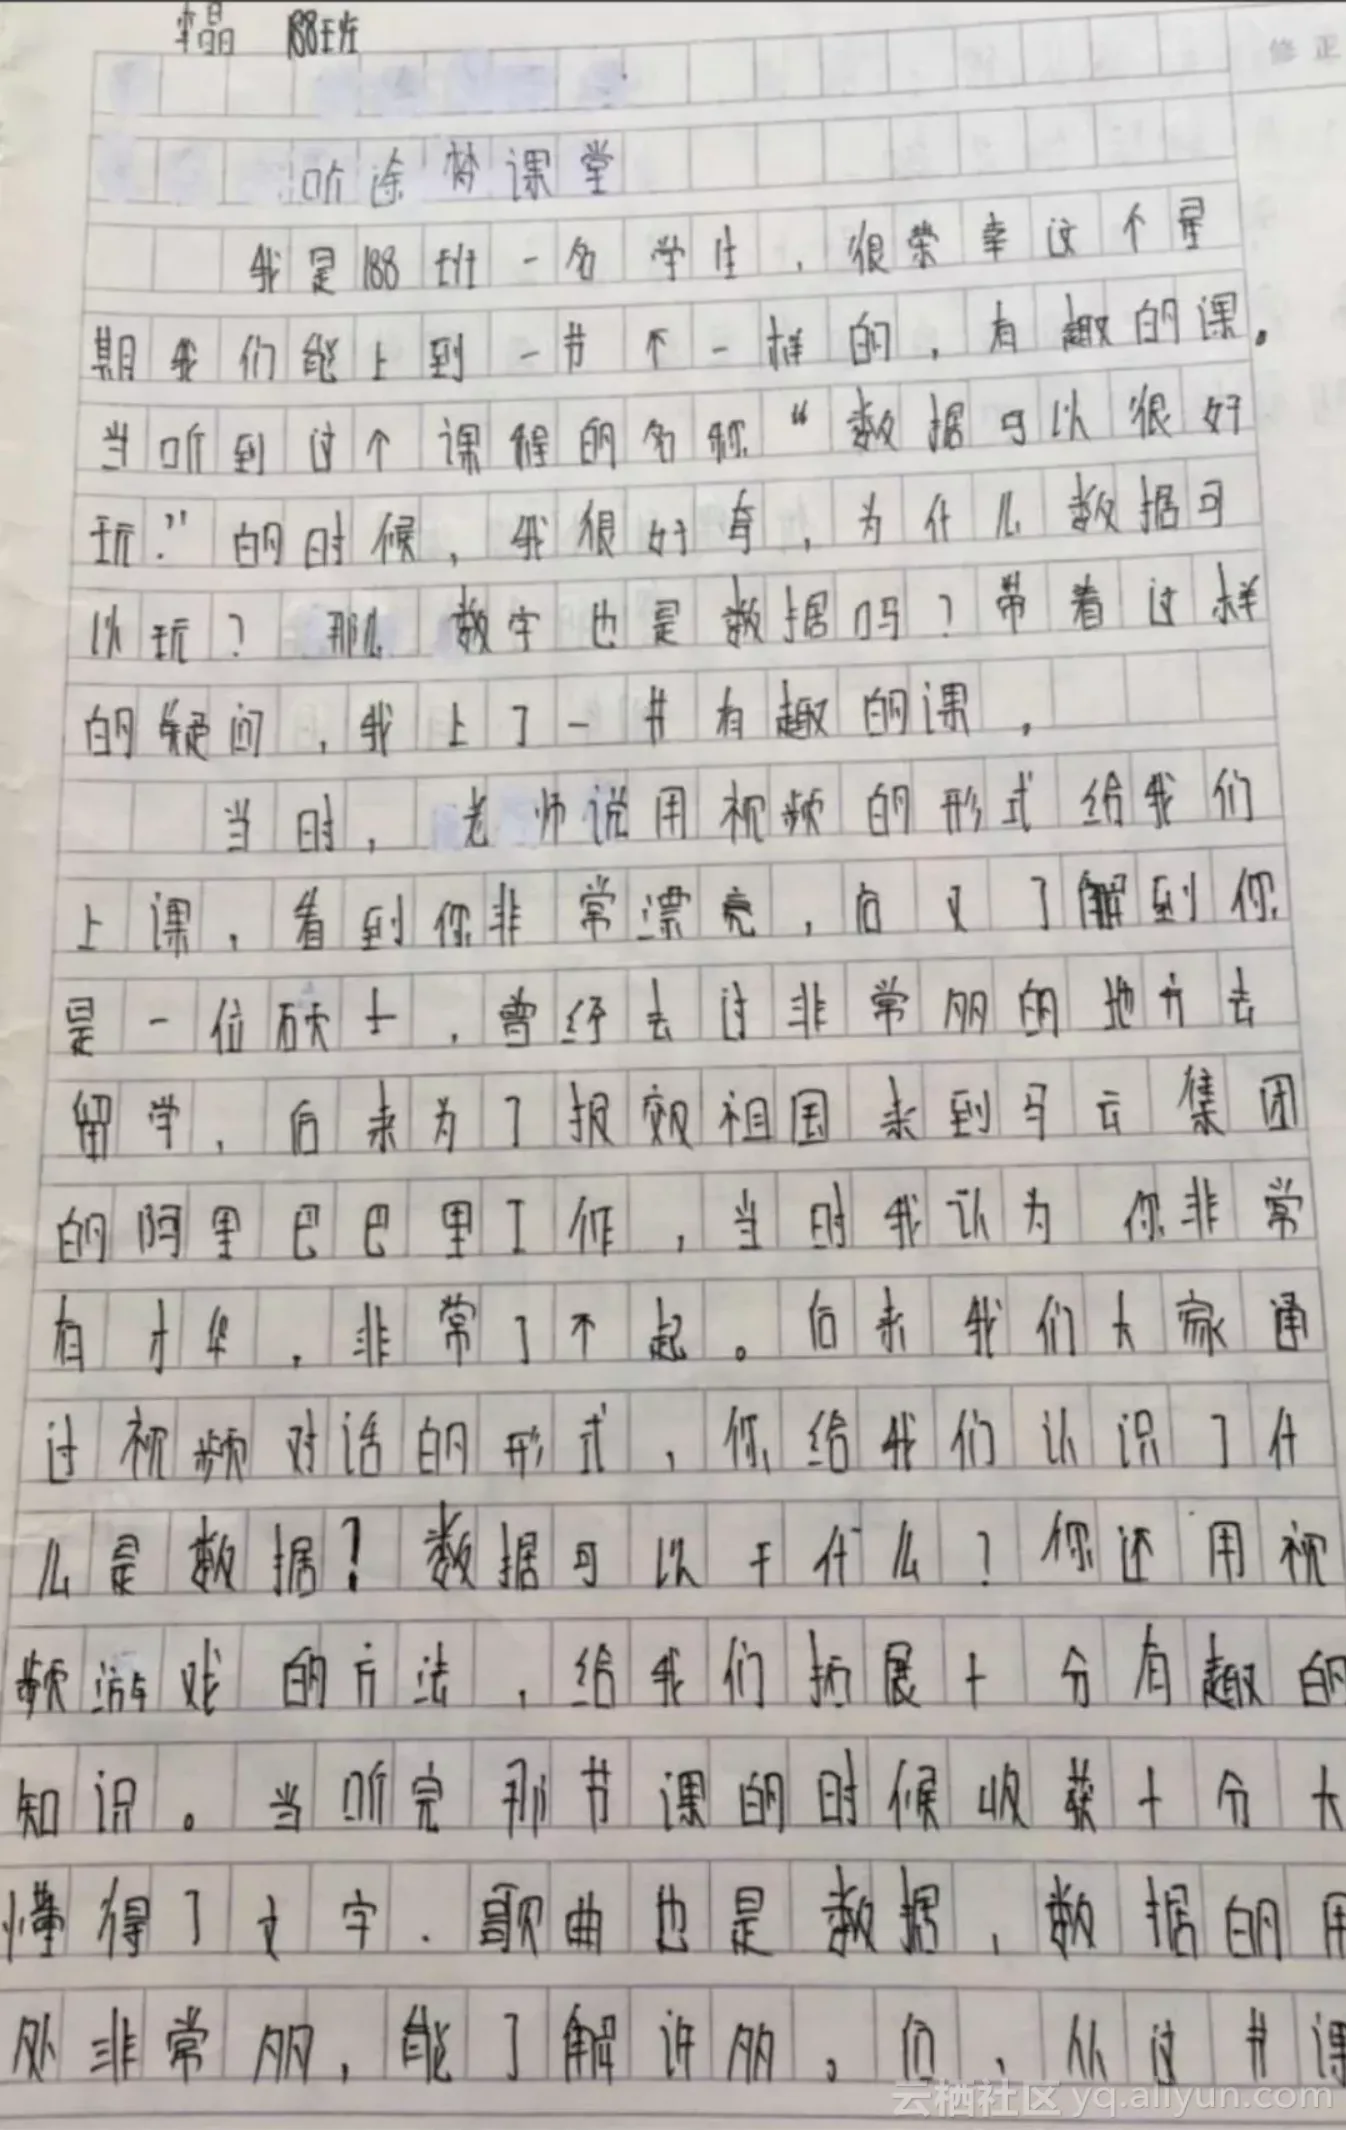 晶 188班
修正
听途梦课堂
我是188班一名学生，很荣幸这个星
期我们能上到一节不一样的，有趣的课。
当听到这个课程的名称“数据可以很好
玩？”的时候，我很好奇，为什么数据可
以玩？那么数字也是数据吗？带着这样
的疑问，我上了一节有趣的课，
当时，老师说用视频的形式给我们
上课，看到你非常漂亮，后又了解到你
是一位硕士，曾经去过非常多的地方去
留学，后来为了报效祖国来到马云集团
的阿里巴巴里工作，当时我认为你非常
有才华，非常了不起。后来我们大家通
过视频对话的形式，你给我们认识了什
么是数据？数据可以干什么？你还用视
频游戏的方法，给我们拓展十分有趣的
知识。当听完那节课的时候收获十分大
懂得了文字．歌曲也是数据，数据的用
处非常多，能了解许多。们，从这节课
云栖社区 yq.aliyun.com